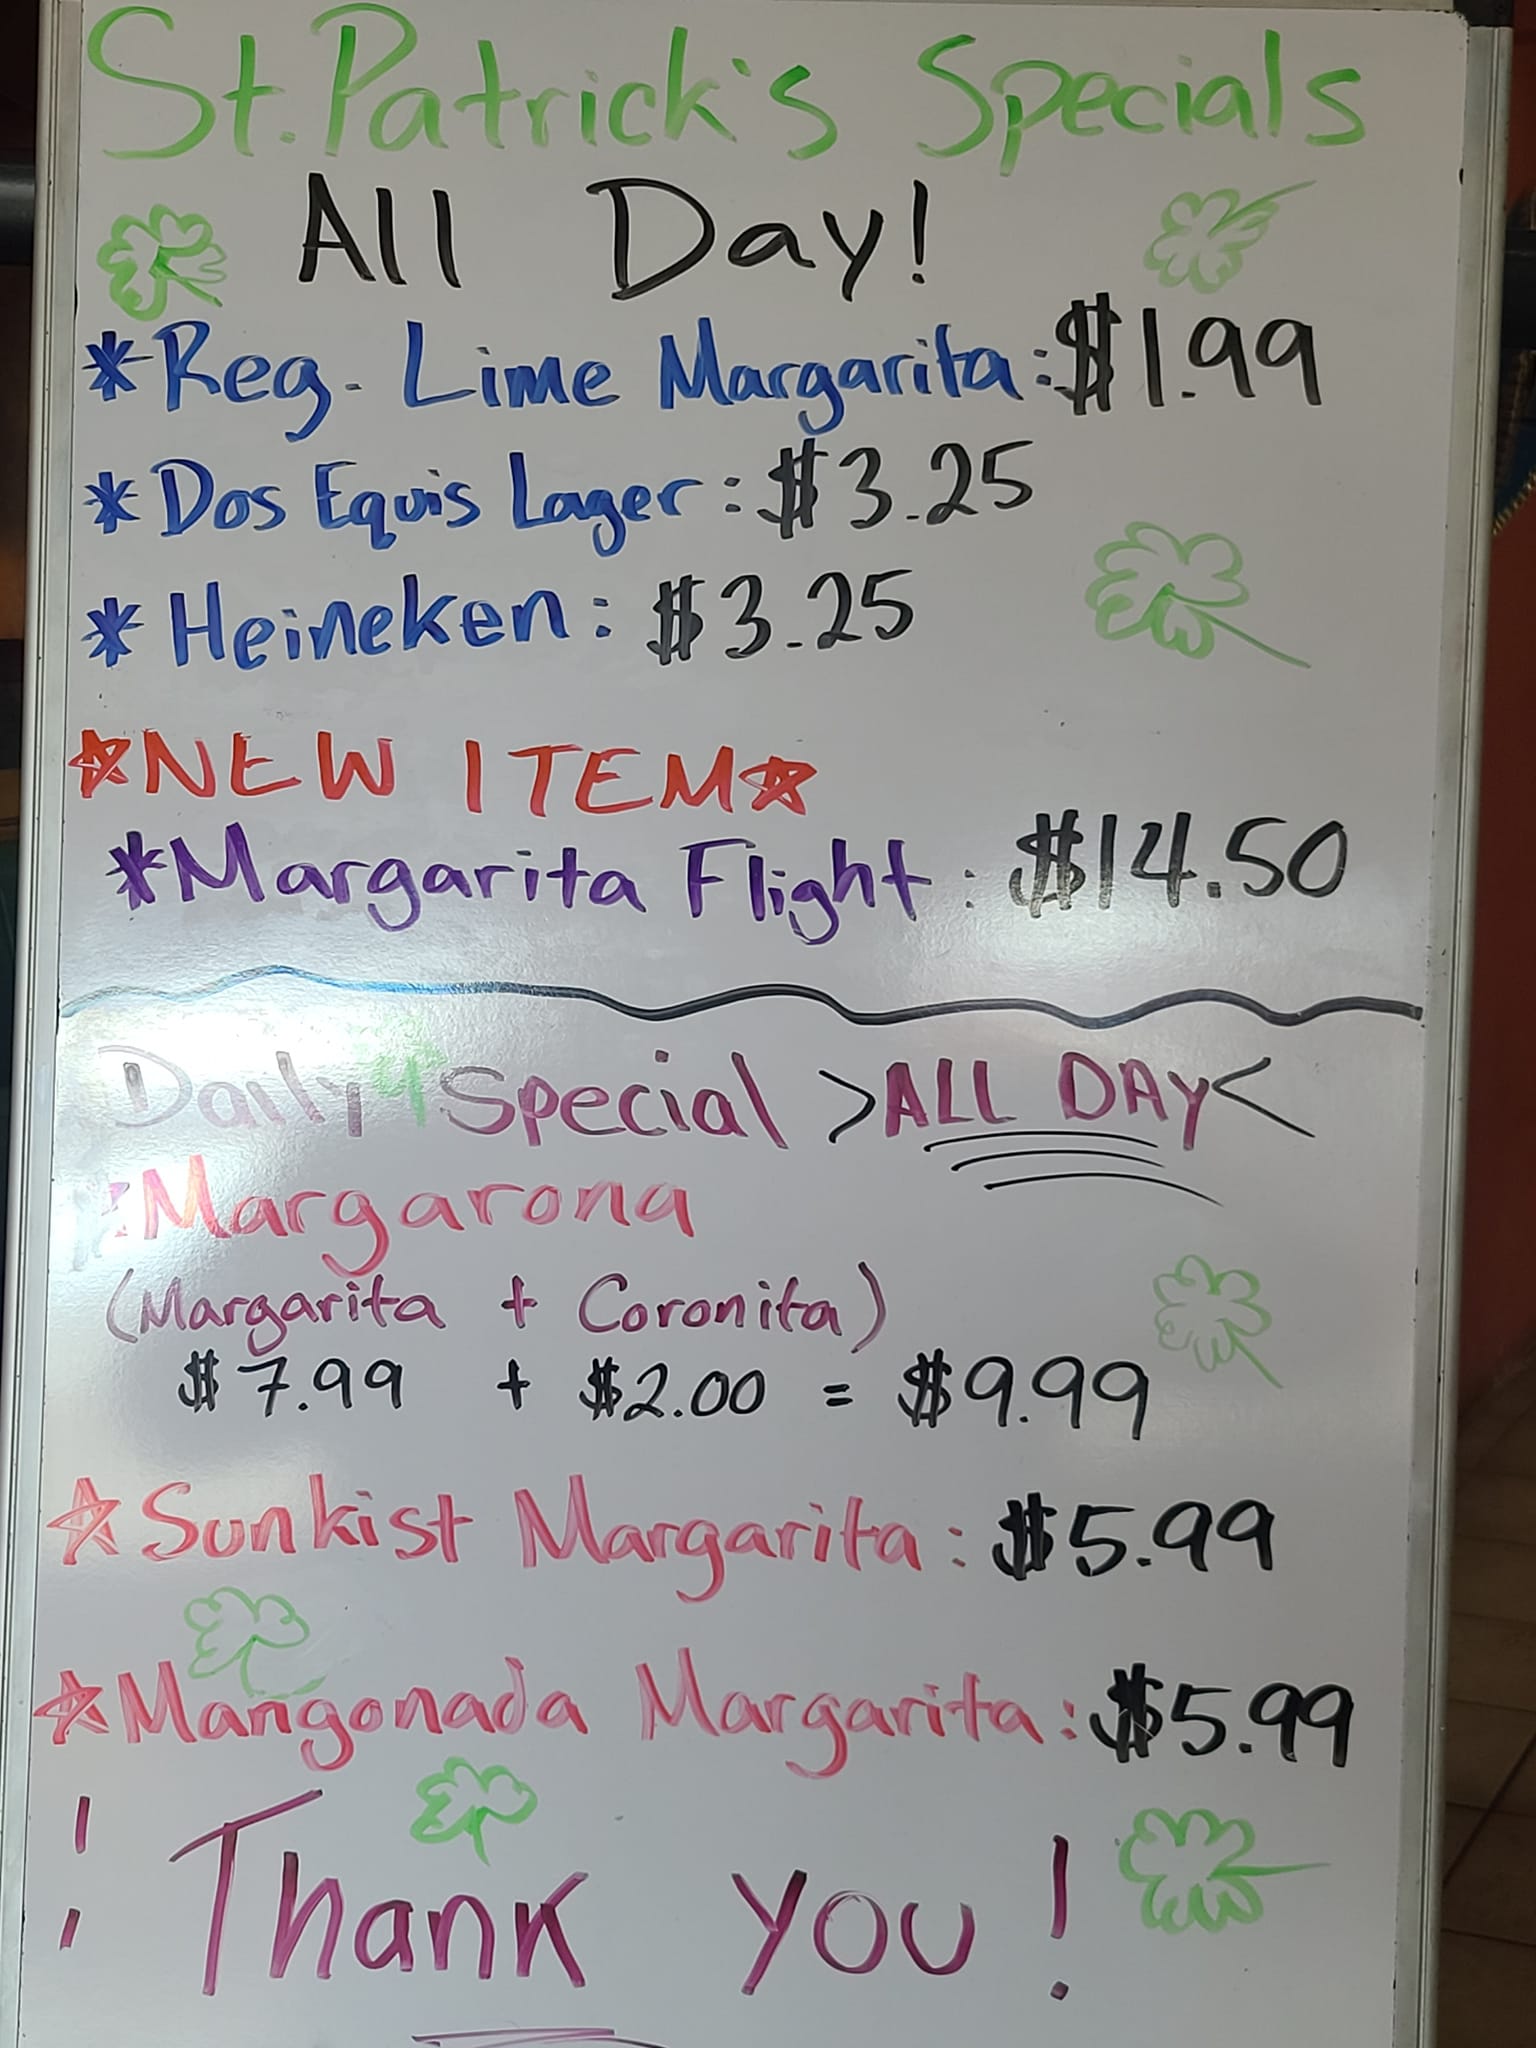 St. Patrick's Specials
All Day!
*Reg. Lime Margarita: $1.99
*Dos Equis Lager: $3.25
*Heineken: $3.25
☆NEW ITEM☆
*Margarita Flight: $14.50
Daily Special >ALL DAY<
:Margarona
(Margarita + Coronita)
$7.99 + $2.00 = $9.99
☆Sunkist Margarita: $5.99
☆Mangonada Margarita: $5.99
¡Thank you!